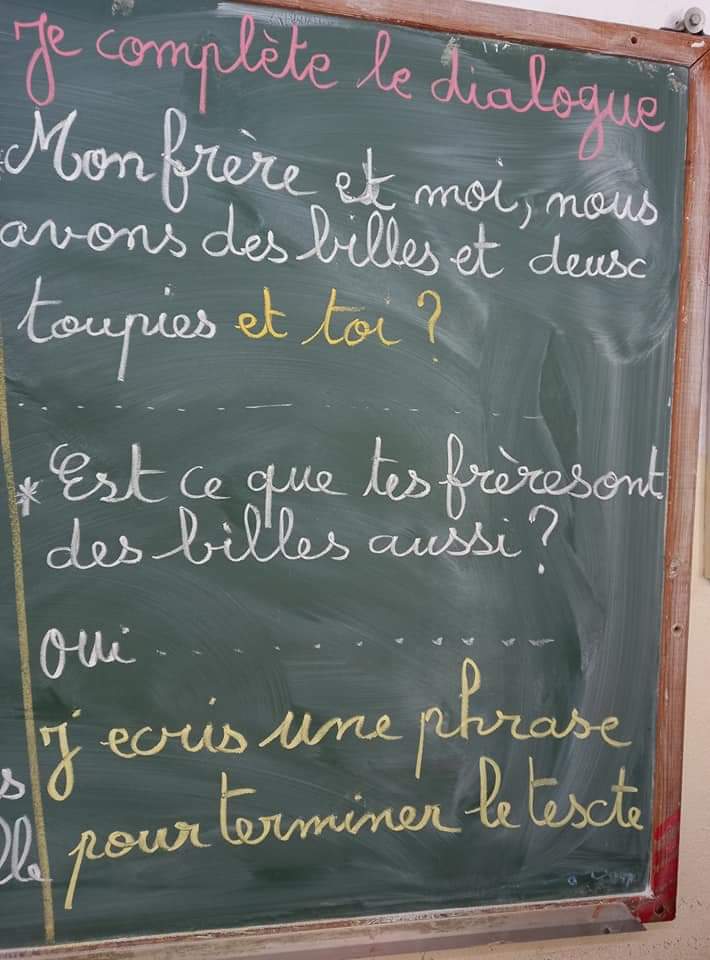 Je complète le dialogue
* Mon frère et moi, nous
avons des billes et deux
toupies et toi ?
* Est ce que tes frères ont
des billes aussi ?
oui
j ecris une phrase
pour terminer le texte
s
lle